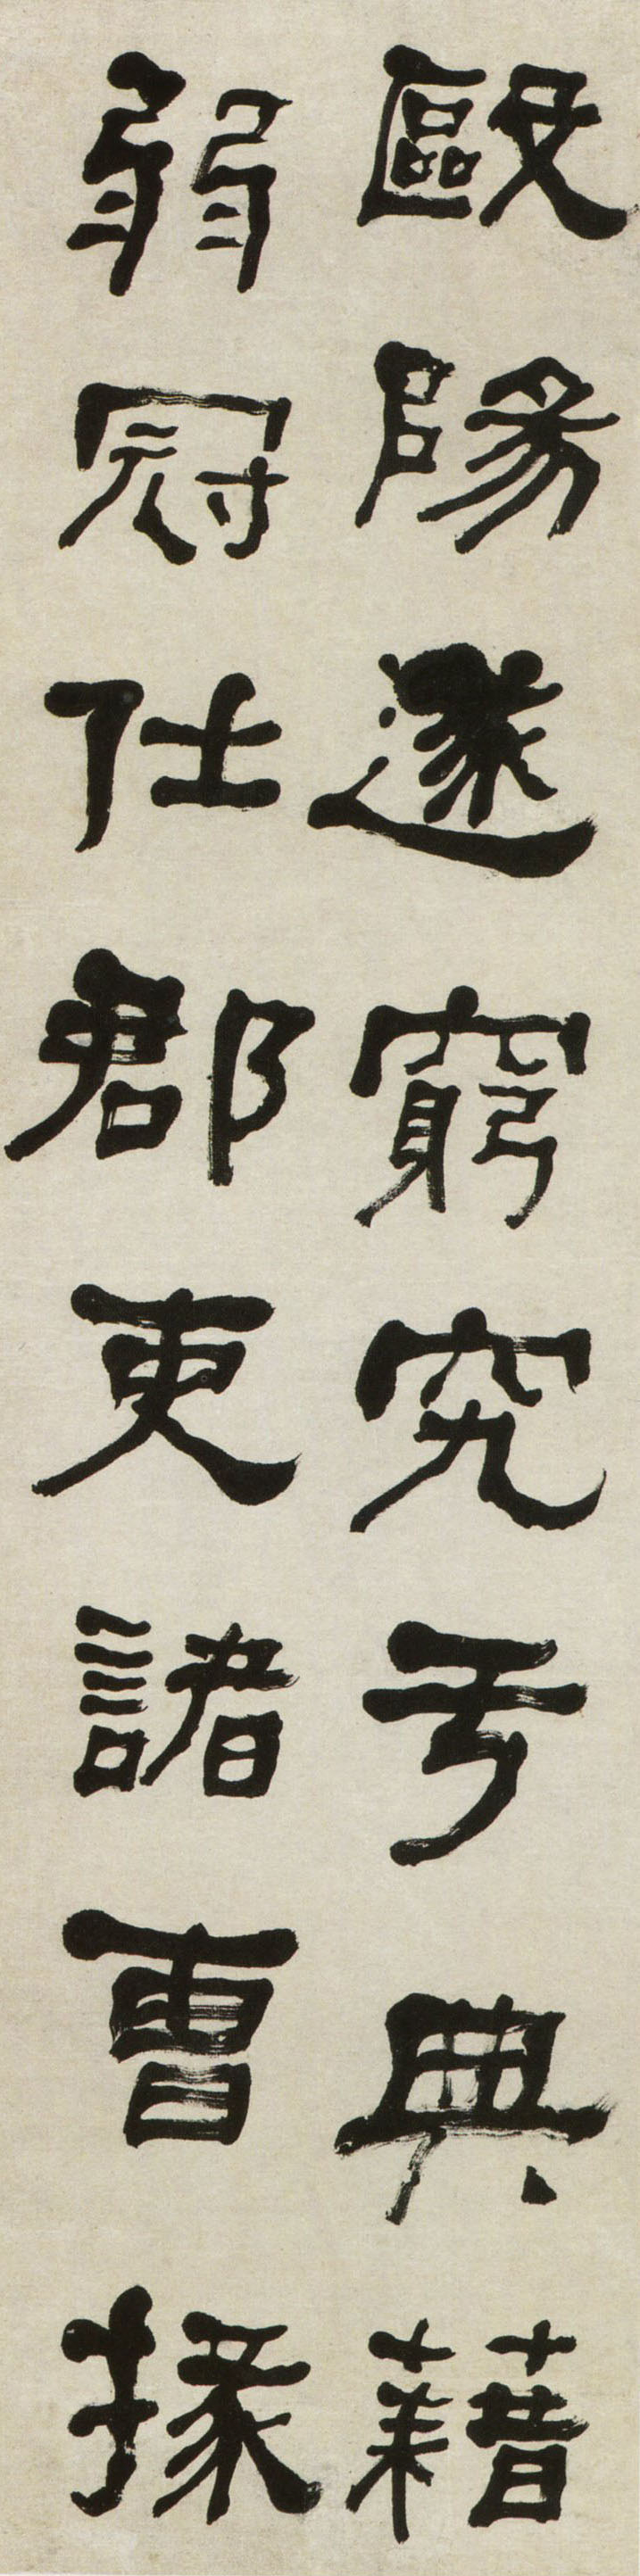 毆陽遂窮究于典藉
弱冠仕郡吏諸曹掾